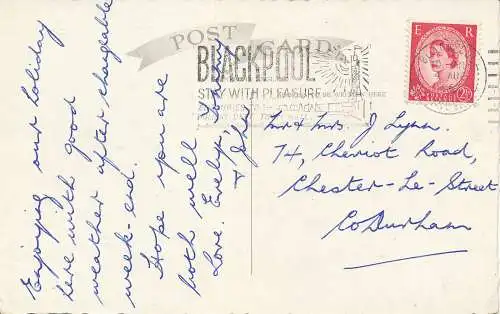 POST CARD
BLACKPOOL
STAY WITH PLEASURE
E R
2½D
Enjoying our holiday
here with good
weather after changeable
week-end.
Hope you are
both well
Love. Evelyn, Johnny
& John
Mr & Mrs. J Lynn.
74, Cheviot Road,
Chester-Le-Street
Co Durham